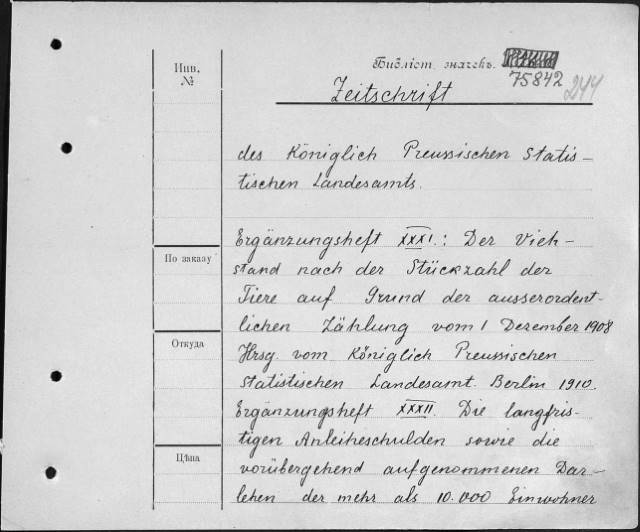 Инв.
№
Библіот. значекъ.
75842 244
Zeitschrift
des Königlich Preussischen Statis-
tischen Landesamts.
Ergänzungsheft XXXI.: Der Vieh-
stand nach der Stückzahl der
Tiere auf Grund der ausserordent-
lichen Zählung vom 1 Dezember 1908
Hrsg. vom Königlich Preussischen
Statistischen Landesamt. Berlin 1910.
Ergänzungsheft XXXII. Die langfris-
tigen Anleiheschulden sowie die
vorübergehend aufgenommenen Dar-
lehen der mehr als 10.000 Einwohner
По заказу
Откуда
Цѣна